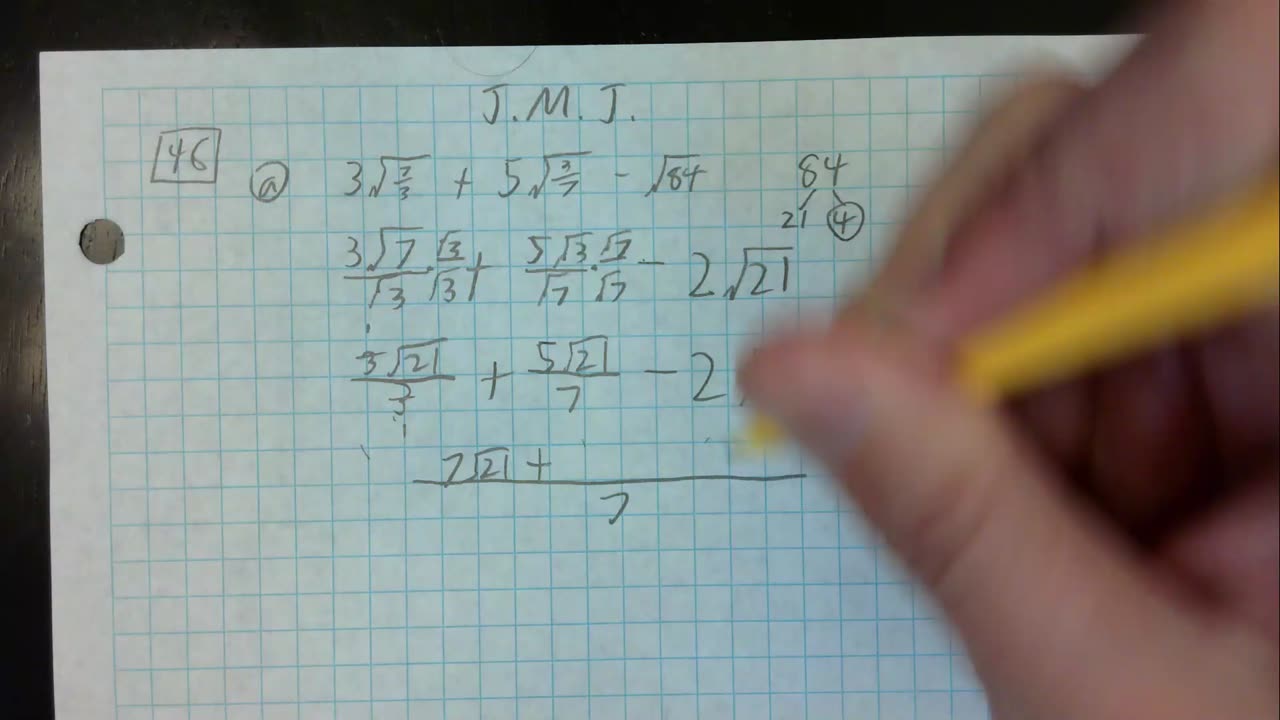 J.M.J.
46 ⓐ 3√(7/3) + 5√(3/7) - √84 84
21 4
3√7/√3 · √3/√3 + 5√3/√7 · √7/√7 - 2√21
3√21/3 + 5√21/7 - 2
7√21 +
7